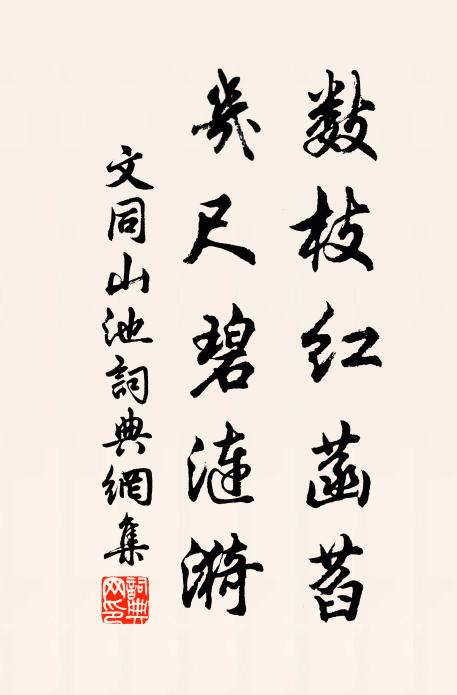 數枝红菡萏
幾尺碧漣漪
文同山池詞典網集
詞典网印